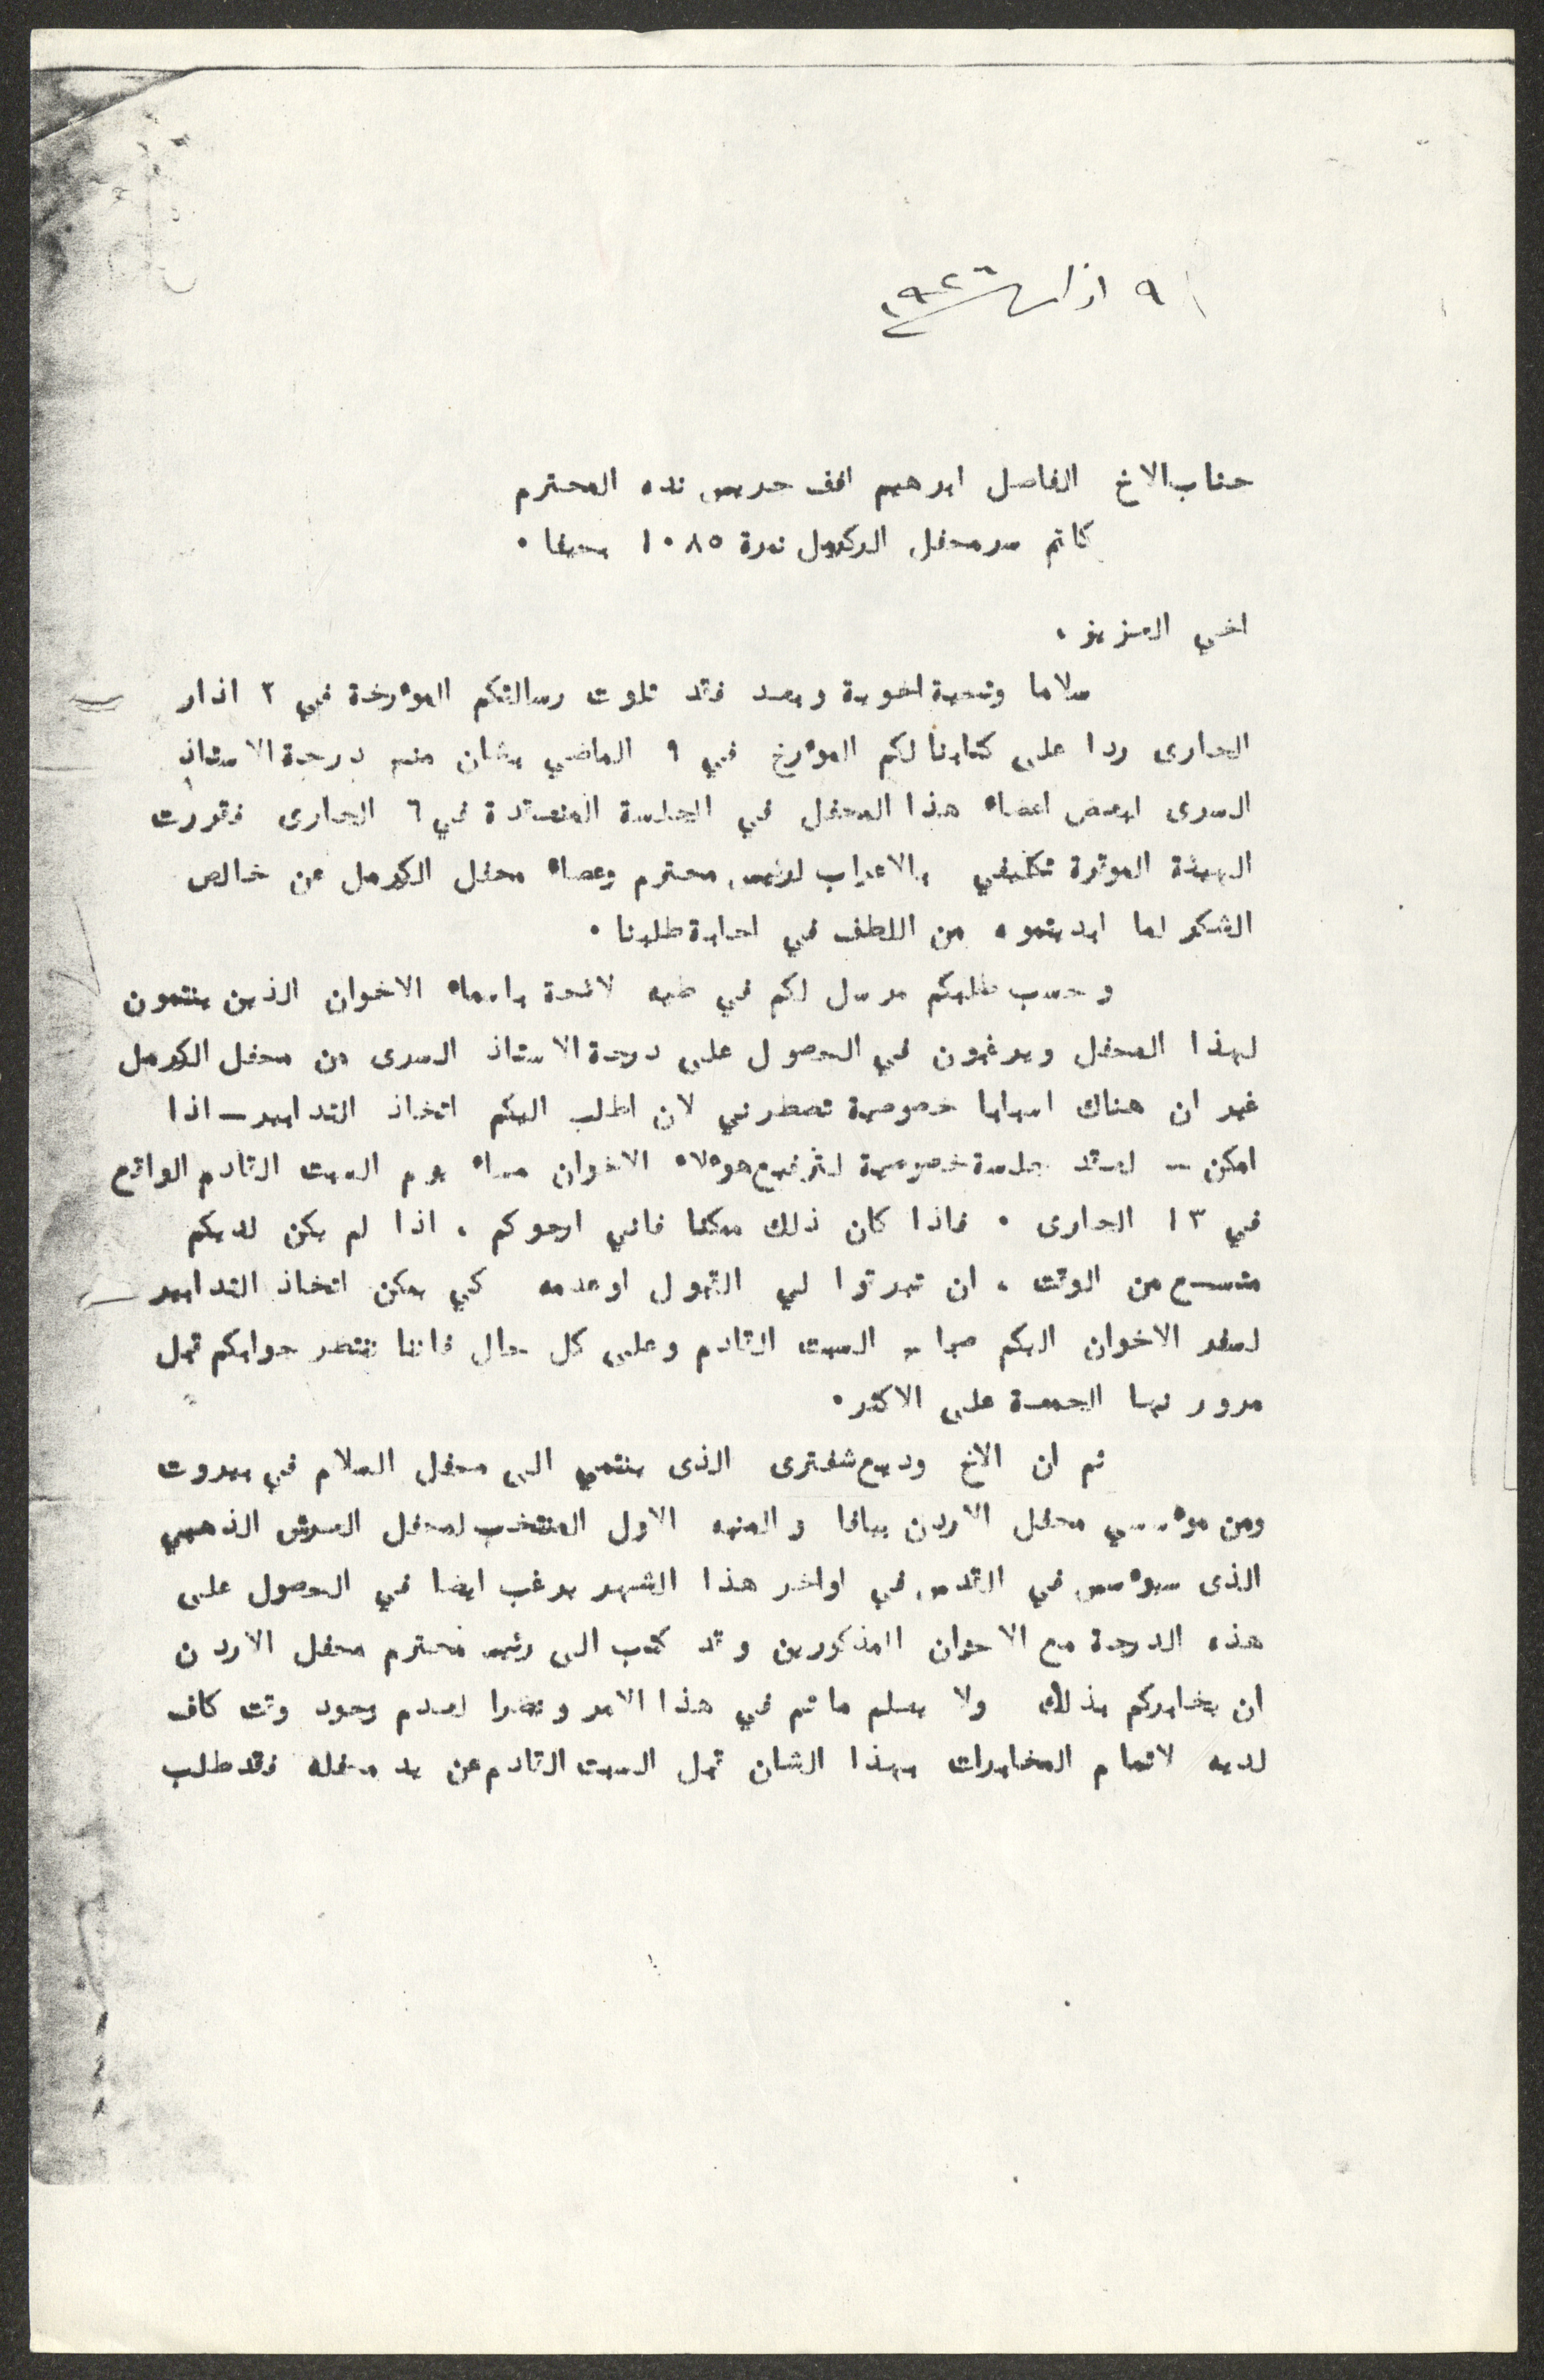 ٩ اذار ١٩٢٦
جناب الاخ الفاضل ابرهيم افند المحترم
كاتم سر محفل الكرمل نمرة ١٠٨٥ بحيفا .
اخي العزيز .
سلاما وتحية اخوية وبعد فقد تلوت رسالتكم الموءرخة في ٢ اذار
الجارى ردا على كتابنا لكم الموءرخ في ٩ الماضي بشان منح درجة الاستاذ
السرى لبعض اعضاء هذا المحفل في الجلسة المنعقدة في ٦ الجارى فقررت
الهيئة الموقرة تكليفي بالاعراب لرئيس محترم وعضاء محفل الكرمل عن خالص
الشكر لما ابديتموه من اللطف في اجابة طلبنا .
وحسب طلبكم مرسل لكم في طيه لائحة باسماء الاخوان الذين ينتمون
لهذا المحفل ويرغبون في الحصول على درجة الاستاذ السرى من محفل الكرمل
غير ان هناك اسبابا خصوصية تضطرني لان اطلب اليكم اتخاذ التدابير ـ اذا
امكن ـ لعقد جلسة خصوصية لترفيع هوءلاء الاخوان مساء يوم السبت القادم الواقع
في ١٣ الجارى . فاذا كان ذلك ممكنا فاني ارجوكم ، اذا لم يكن لديكم
متسع من الوقت ، ان تبرقوا لي القبول او عدمه كي يمكن اتخاذ التدابير
لسفر الاخوان اليكم صباح السبت القادم وعلى كل حال فاننا ننتظر جوابكم قبل
مرور نهار الجمعة على الاكثر .
ثم ان الاخ وديع شفترى الذى ينتمي الى محفل السلام في بيروت
ومن موءسسي محفل الاردن بيافا والمنبه الاول المنتخب لمحفل العرش الذهبي
الذى سيوءسس في القدس في اواخر هذا الشهر يرغب ايضا في الحصول على
هذه الدرجة مع الاخوان المذكورين وقد كتب الى رئيس محترم محفل الاردن
ان يخابركم بذلك ولا يعلم ما تم في هذا الامر ونظرا لعدم وجود وقت كاف
لديه لاتمام المخابرات بهذا الشان قبل السبت القادم عن يد محفله فقد طلب